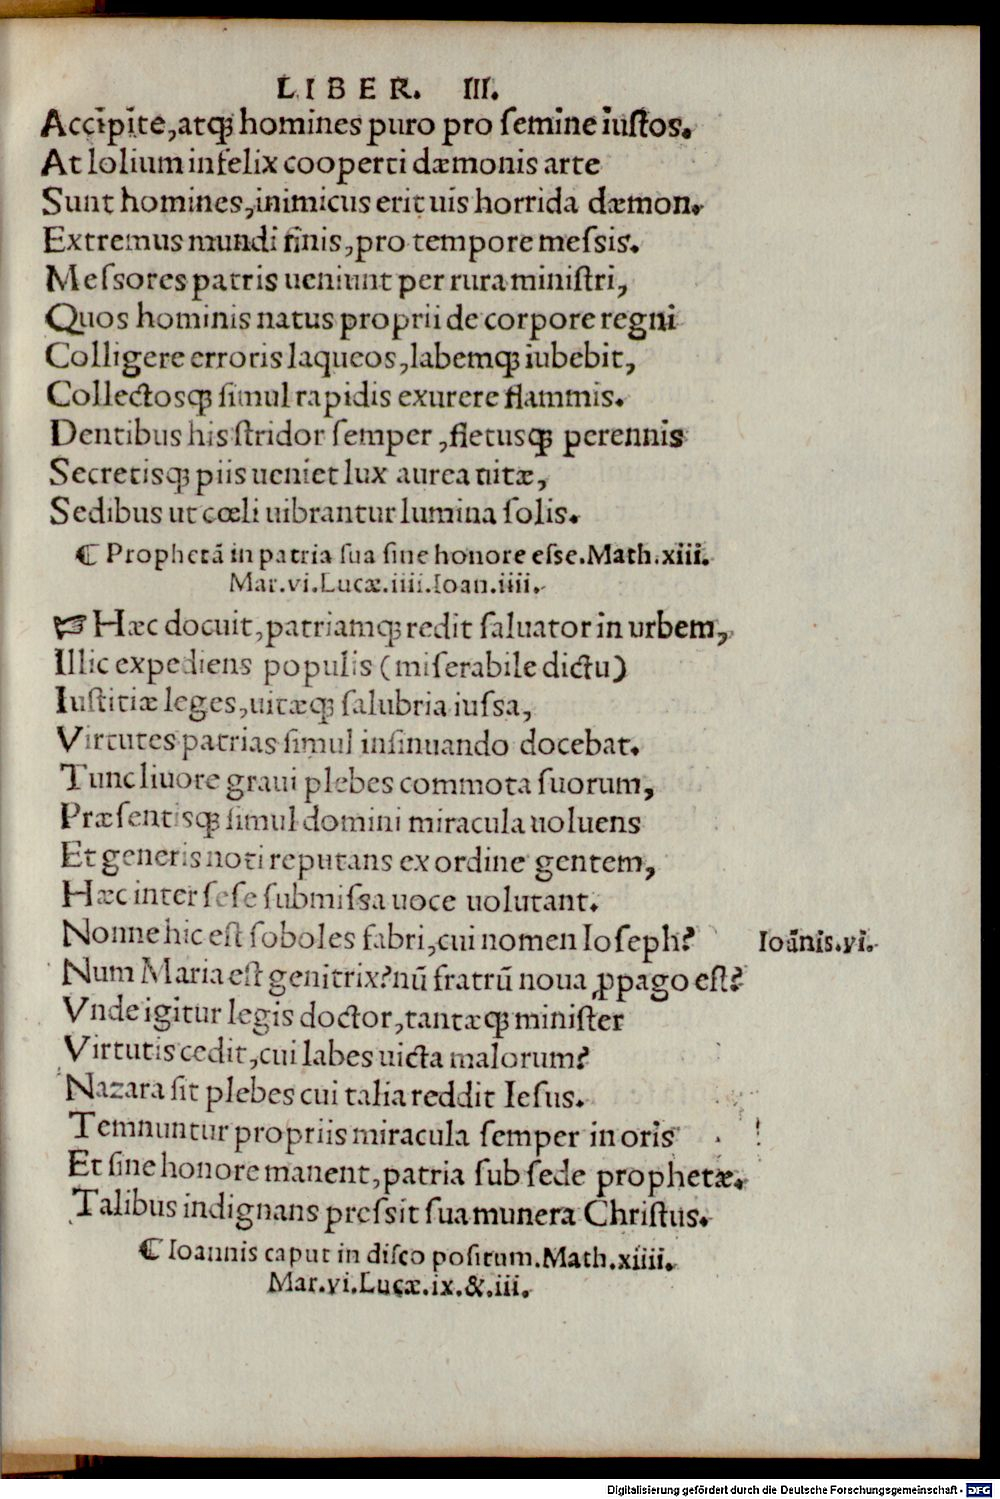 LIBER. III.
Accipite,atqꝫ homines puro pro ſemine iuſtos.
At lolium infelix cooperti dæmonis arte
Sunt homines,inimicus erit uis horrida dæmon.
Extremus mundi finis,pro tempore meſsis.
Meſsores patris ueniunt per rura miniſtri,
Quos hominis natus proprii de corpore regni
Colligere erroris laqueos,labemqꝫ iubebit,
Collectosqꝫ ſimul rapidis exurere flammis.
Dentibus his ſtridor ſemper,fletusqꝫ perennis
Secretisqꝫ piis ueniet lux aurea uitæ,
Sedibus ut cœli uibrantur lumina ſolis.
⁋ Prophetã in patria ſua ſine honore eſse.Math.xiii.
Mar.vi.Lucæ.iiii.Ioan.iiii.
☞ Hæc docuit,patriamqꝫ redit ſaluator in urbem,
Illic expediens populis (miſerabile dictu)
Iuſtitiæ leges,uitæqꝫ ſalubria iuſsa,
Virtutes patrias ſimul inſinuando docebat.
Tunc liuore graui plebes commota ſuorum,
Præſentisqꝫ ſimul domini miracula uoluens
Et generis noti reputans ex ordine gentem,
Hæc inter ſeſe ſubmiſsa uoce uolutant.
Nonne hic eſt ſoboles fabri,cui nomen Ioſeph?
Ioãnis.vi.
Num Maria eſt genitrix?nũ fratrũ noua ꝓpago eſt?
Vnde igitur legis doctor,tantæqꝫ miniſter
Virtutis cedit,cui labes uicta malorum?
Nazara ſit plebes cui talia reddit Ieſus.
Temnuntur propriis miracula ſemper in oris
Et ſine honore manent,patria ſub ſede prophetæ.
Talibus indignans preſsit ſua munera Chriſtus.
⁋ Ioannis caput in diſco poſitum.Math.xiiii.
Mar.vi.Lucæ.ix.&.iii.
Digitalisierung gefördert durch die Deutsche Forschungsgemeinschaft - DFG